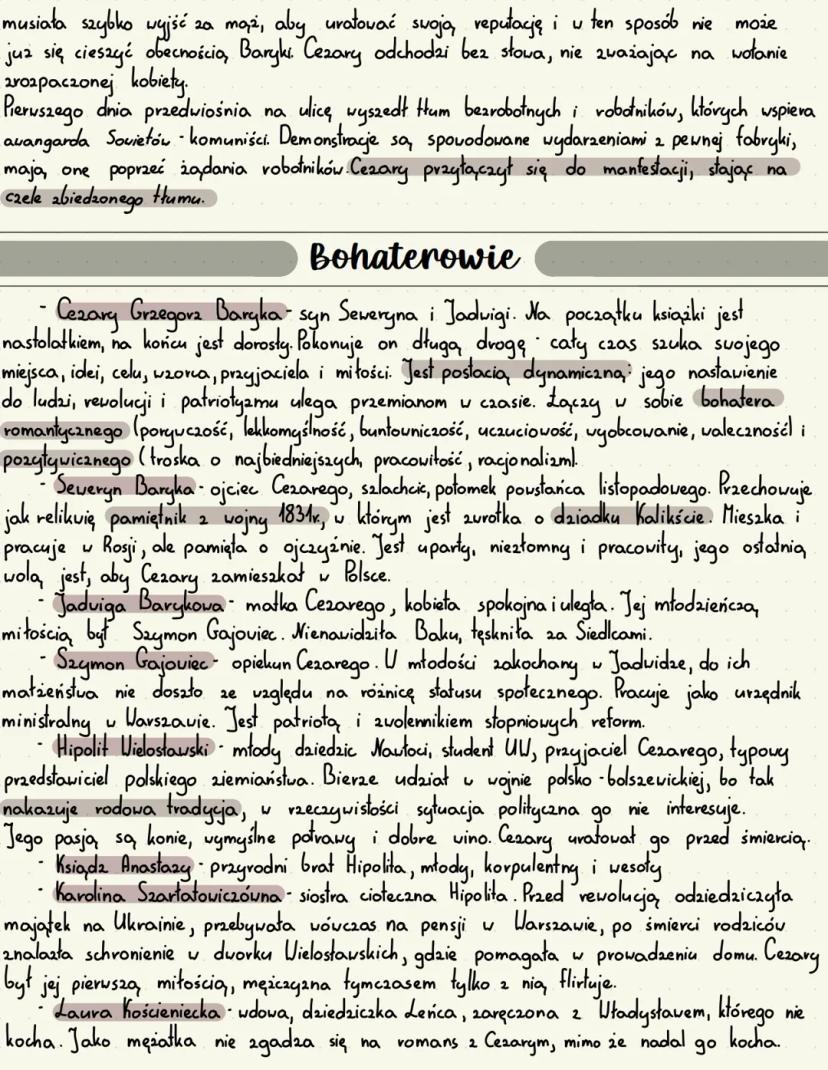 musiała szybko wyjść za mąż, aby uratować swoją reputację i w ten sposób nie może
już się cieszyć obecnością Baryki. Cezary odchodzi bez słowa, nie zważając na wołanie
zrozpaczonej kobiety.
Pierwszego dnia przedwiośnia na ulicę wyszedł tłum bezrobotnych i robotników, których wspiera
awangarda Sowietów - komuniści. Demonstracje są spowodowane wydarzeniami z pewnej fabryki,
mają one poprzeć żądania robotników. Cezary przyłączył się do manfestacji, stając na
czele zbiedzonego tłumu.
Bohaterowie
- Cezary Grzegorz Baryka - syn Seweryna i Jadwigi. Na początku książki jest
nastolatkiem, na końcu jest dorosły. Pokonuje on długą drogę - cały czas szuka swojego
miejsca, idei, celu, wzorca, przyjaciela i miłości. Jest postacią dynamiczną: jego nastawienie
do ludzi, rewolucji i patriotyzmu ulega przemianom w czasie. Łączy w sobie bohatera
romantycznego (porywczość, lekkomyślność, buntowniczość, uczuciowość, wyobcowanie, waleczność) i
pozytywicznego (troska o najbiedniejszych, pracowitość, racjonalizm).
- Seweryn Baryka - ojciec Cezarego, szlachcic, potomek powstańca listopadowego. Przechowuje
jak relikwię pamiętnik z wojny 1831r., w którym jest zwrotka o dziadku Kalikście. Mieszka i
pracuje w Rosji, ale pamięta o ojczyźnie. Jest uparty, niezłomny i pracowity, jego ostatnią
wolą jest, aby Cezary zamieszkał w Polsce.
- Jadwiga Barykowa - matka Cezarego, kobieta spokojna i uległa. Jej młodzieńczą
miłością był Szymon Gajowiec. Nienawidziła Baku, tęskniła za Siedlcami.
- Szymon Gajowiec - opiekun Cezarego. W młodości zakochany w Jadwidze, do ich
małżeństwa nie doszło ze względu na różnicę statusu społecznego. Pracuje jako urzędnik
ministralny w Warszawie. Jest patriotą i zwolennikiem stopniowych reform.
- Hipolit Wielosławski - młody dziedzic Nawłoci, student UW, przyjaciel Cezarego, typowy
przedstawiciel polskiego ziemiaństwa. Bierze udział w wojnie polsko-bolszewickiej, bo tak
nakazuje rodowa tradycja, w rzeczywistości sytuacja polityczna go nie interesuje.
Jego pasją są konie, wymyślne potrawy i dobre wino. Cezary uratował go przed śmiercią.
- Ksiądz Anastazy - przyrodni brat Hipolita, młody, korpulentny i wesoły
- Karolina Szarłatowiczówna - siostra cioteczna Hipolita. Przed rewolucją odziedziczyła
majątek na Ukrainie, przebywała wówczas na pensji w Warszawie, po śmierci rodziców
znalazła schronienie w dworku Wielosławskich, gdzie pomagała w prowadzeniu domu. Cezary
był jej pierwszą miłością, mężczyzna tymczasem tylko z nią flirtuje.
- Laura Kościeniecka - wdowa, dziedziczka Leńca, zaręczona z Władysławem, którego nie
kocha. Jako mężatka nie zgadza się na romans z Cezarym, mimo że nadal go kocha.